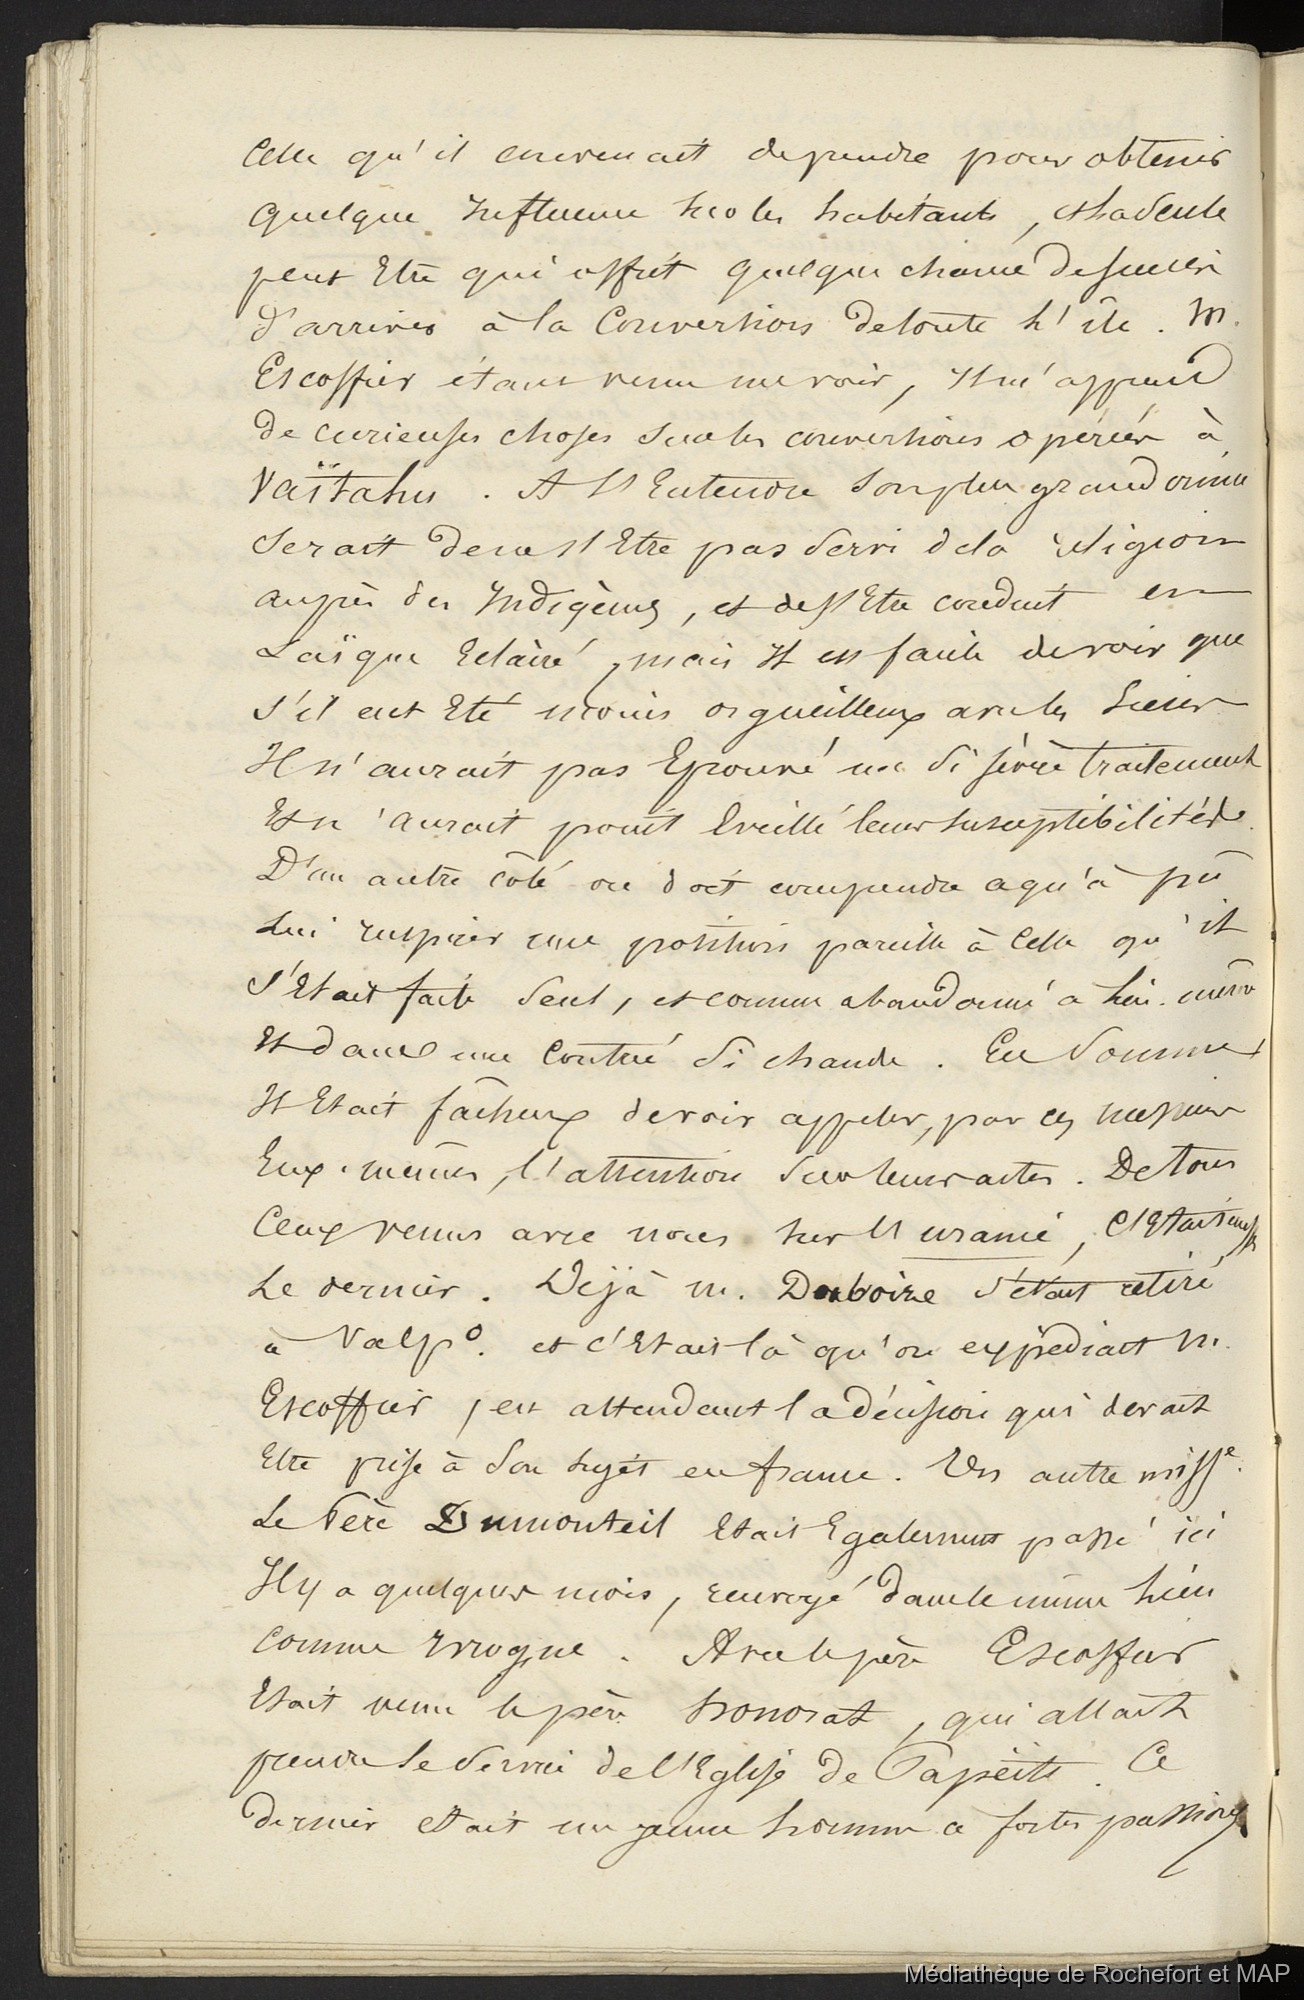 Celle qu'il convenait de prendre pour obtenir
quelque Influence sur les habitants, et la seule
peut Etre qui offrit quelque chance de succès
d'arriver à la Conversion de toute l'île. M.
Escoffier étant venu me voir, Il m'apprend
de curieuses choses sur les conversions opérées à
Vaïtahu. A l'Entendre son plus grand crime
serait de ne s'Etre pas servi de la religion
auprès des Indigènes, et de s'Etre conduit en
Laïque Eclairé, mais Il est facile de voir que
s'il eut Eté moins orgueilleux avec les siens
Il n'aurait pas Eprouvé un si sévère traitement
Et n'aurait point Eveillé leur susceptibilité
D'un autre côté on doit comprendre ce qu'à pû
Lui inspirer une position pareille à Celle qu'il
s'Etait faite seul, et comme abandonné à lui-même
Et dans une Contrée si chaude. En somme
Il Etait fâcheux de voir appeler, par ces messieurs
Eux-mêmes, l'attention sur leurs actes. De tous
Ceux venus avec nous sur l'uranie, C'Etait
Le dernier. Déjà m. Duboize s'était retiré
à Valpo. et c'Etait là qu'on expédiait M.
Escoffier, en attendant la décision qui devait
Etre prise à son sujet en france. Un autre misse.
Le Père Dumonteil Etait Egalement passé ici
Il y a quelques mois, renvoyé dans le même lieu
comme Ivrogne. Avec le père Escoffier
Etait venu le père honorat, qui allait
prendre le service de l'Eglise de Papéiti. Ce
dernier était un jeune homme à fortes passions